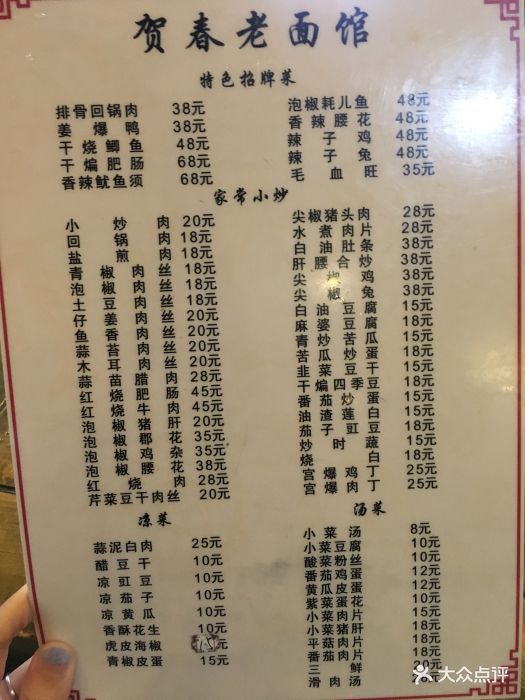 贺春老面馆
特色招牌菜
排骨回锅肉 38元
姜爆鸭 38元
干烧鲫鱼 48元
干煸肥肠 68元
香辣鱿鱼须 68元
泡椒耗儿鱼 48元
香辣腰花 48元
辣子鸡 48元
辣子兔 48元
毛血旺 35元
家常小炒
小炒肉 20元
回锅肉 18元
盐煎肉 18元
青椒肉丝 18元
泡椒肉丝 18元
土豆肉丝 18元
仔姜肉丝 20元
鱼香肉丝 18元
蒜苔肉丝 18元
木耳肉丝 18元
蒜苗腊肉 28元
红烧肥肠 45元
红烧牛肉 45元
泡椒猪肝 35元
泡椒郡花 35元
泡椒鸡杂 35元
泡椒腰花 38元
红烧肉 28元
芹菜豆干肉丝 20元
尖椒猪头肉 28元
水煮肉片 28元
白油肚条 38元
肝腰合炒 38元
尖椒鸡 38元
尖椒兔 38元
白油豆腐 15元
麻婆豆腐 18元
青炒苦瓜 15元
苦瓜炒蛋 18元
韭菜豆干 18元
干煸四季豆 18元
番茄炒蛋 18元
油渣莲白 15元
茄子豇豆 18元
炒时蔬 15元
烧白 25元
宫爆鸡丁 25元
宫爆肉丁 25元
凉菜
蒜泥白肉 25元
醋豆干 10元
凉豇豆 10元
凉茄子 10元
凉黄瓜 10元
香酥花生 10元
虎皮海椒
青椒皮蛋 15元
汤菜
小菜汤 8元
小菜豆腐 10元
酸菜粉丝 10元
番茄鸡蛋 12元
黄瓜皮蛋 12元
紫菜蛋花 10元
小菜肉片 15元
小菜猪肝 18元
平菇肉片 18元
番茄肉片 18元
三鲜汤 20元
滑肉汤
大众点评